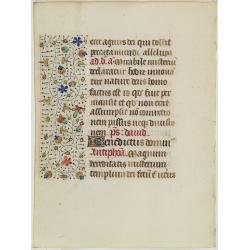 ecce agnus dei qui tollit
peccata mundi alleluya
Ad b. a. Mirabile misteriu
declaratur hodie innova
tur nature deus homo
factus est id qd fuit per
mansit et qd non erat
assumpsit no comextio
nem passus neq divisio
nem ps david.
Benedictus domin
Antiphon. Magnum
hereditatis misterium
templum dei factu e uterus